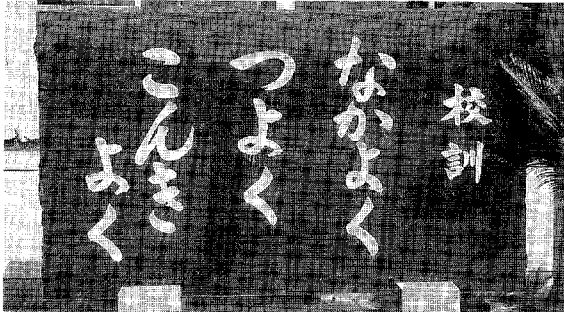 校訓
なかよく
つよく
こんき
よく